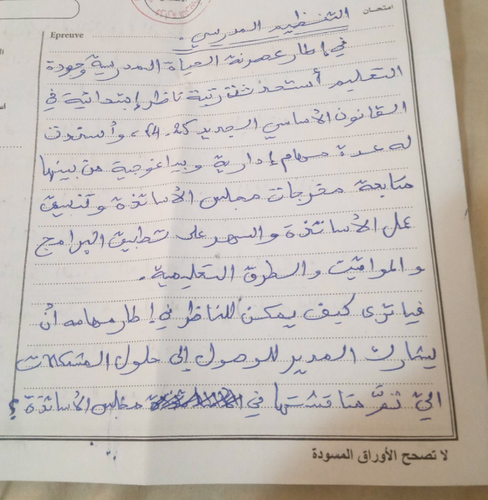 امتحـان
Epreuve
التنظيم المدرسي.
في إطار عصرنة الحياة المدرسية وجودة
التعليم أستحدثت رتبة ناظر إبتدائية في
القانون الأساسي الجديد 25-54، وأسندت
له عدة مهام إدارية وبيداغوجية من بينها
متابعة مخرجات مجلس الأساتذة وتنسيق
عمل الأساتذة والسهر على تطبيق البرامج
والمواقيت والطرق التعليمية.
فيا ترى كيف يمكن للناظر في إطار مهامه أن
يشارك المدير للوصول إلى حلول المشكلات
التي تمَّ مناقشتها في مجلس الأساتذة؟
لا تصحح الأوراق المسودة